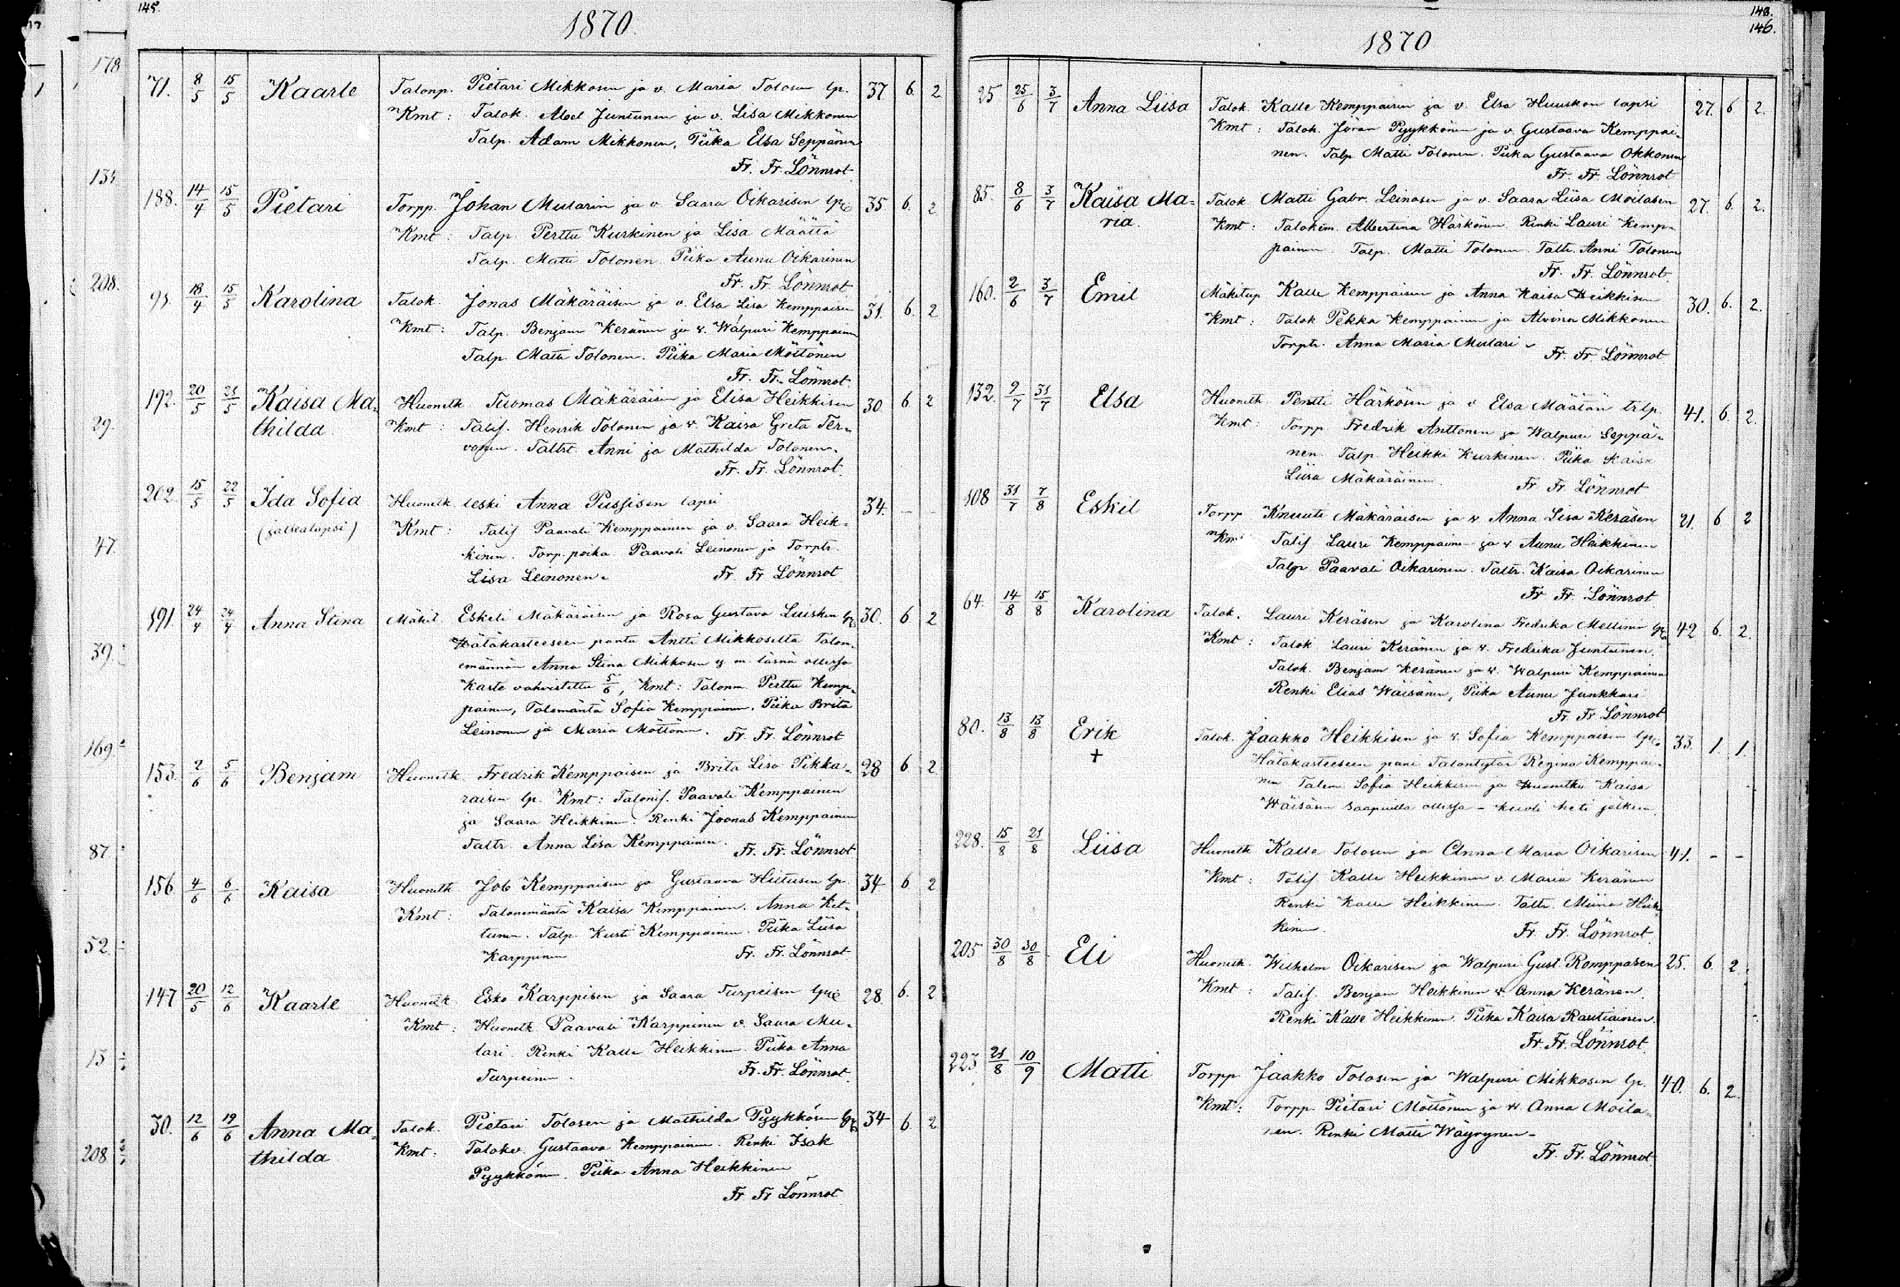 145.
1870.
71. 8/5 15/5 Kaarle Talonp. Pietari Mikkosen ja v. Maria Tolosen lp. 37 6. 2
Kmt: Talok. Abel Juntunen ja v. Lisa Mikkonen
Talp. Adam Mikkonen, Piika Elsa Seppänen
Fr. Fr. Lönnrot
188. 14/4 15/5 Pietari Torpp. Johan Mularin ja v. Saara Oikarisen lps 35 6. 2
Kmt: Talp. Perttu Kurkinen ja Lisa Määttä
Talp. Matti Tolonen. Piika Aunu Oikarinen
Fr. Fr. Lönnrot
18/4 15/5 Karolina Talok. Jonas Mäkäräisen ja v. Elsa Lisa Kemppaisen 31. 6. 2
Kmt: Talp. Benjam Keränen ja v. Walpuri Kemppainen
Talp. Matti Tolonen. Piika Maria Möttönen
Fr. Fr. Lönnrot
192. 20/5 21/5 Kaisa Ma- Huonelk Tuomas Mäkäräisen ja Elisa Heikkisen 30 6 2
thilda Kmt: Talij. Henrik Tolonen ja v. Kaisa Greta Ter-
vonen. Taltrt. Anni ja Mathilda Tolonen.
Fr. Fr. Lönnrot
202. 15/5 22/5 Ida Sofia Huonelk leski Anna lapsi 34. — —
(jalkalapsi) Kmt: Talij Paavali Kemppainen ja v. Saara Heik-
kinen. Torp. poika Paavali Leinonen ja Torptr.
Lisa Leinonen. Fr. Fr Lönnrot
191. 24/4 24/4 Anna Stina Mäkit. Eskeli Mäkäräisen ja Rosa Gustava lps 30. 6 2
Hätäkasteeseen pantu Antti Mikkoselta Talon-
emännän Anna Stina Mikkosen y. m. läsnä ollessa
Kaste vahvistettu 5/6, Kmt: Talonm Perttu Kemp-
painen, Talemäntä Sofia Kemppainen, Piika Brita
Leinonen ja Maria Möttönen. Fr. Fr. Lönnrot
153. 2/6 5/6 Benjam Huonelk Fredrik Kemppaisen ja Brita Lisa Pikka- 28 6 2
raisen lp. Kmt: Talonij. Paavali Kemppainen
ja Saara Heikkinen. Renki Joonas Kemppainen
Taltr. Anna Lisa Kemppainen. Fr. Fr. Lönnrot
156 4/6 6/6 Kaisa Huonelk Job Kemppaisen ja Gustaava Hiltusen lp. 34 6 2
Kmt: Talonemäntä Kaisa Kemppainen. Anna Kil-
tunen. Talp. Kusti Kemppainen. Piika Liisa
Karppinen Fr. Fr. Lönnrot
147 20/5 12/6 Kaarle Huonelk Esko Karppisen ja Saara Turpeisen lps 28. 6. 2
Kmt: Huonelk Paavali Karppinen v. Saara Mu-
lari. Renki Kalle Heikkinen. Piika Anna
Turpeinen. Fr. Fr. Lönnrot.
30. 12/6 19/6 Anna Ma- Talok. Pietari Tolosen ja Mathilda Pyykkösen lps 34 6. 2
thilda Kmt: Gustaava Kemppainen. Renki Isak
Pyykkönen. Piika Anna Heikkinen
Fr Fr Lönnrot
178
134
208.
29.
47.
39.
169
87.
52.
15
208
148.
146.
1870
25 25/6 3/7 Anna Liisa Talok. Kalle Kemppaisen ja v. Elsa Huuskon lapsi 27. 6 2.
Kmt: Talok. Jöran Pyykkönen ja v. Gustaava Kemppai-
nen. Talp. Matti Tolonen. Piika Gustaava Okkonen
Fr. Fr. Lönnrot
85. 8/6 3/7 Kaisa Ma- Talok. Matti Gabr. Leinosen ja v. Saara Liisa Moilasen 27. 6. 2.
ria. Kmt: Talokem. Albertina Härkönen. Renki Lauri Kemp-
painen. Talp. Matti Tolonen. Taltr. Anni Tolonen
Fr. Fr. Lönnrot
160. 2/6 3/7 Emil Mäkitup Kalle Kemppaisen ja Anna Kaisa Heikkisen 30. 6. 2.
Kmt: Talok Pekka Kemppainen ja Alvina Mikkonen
Torptr. Anna Maria Mulari. Fr. Fr. Lönnrot
132. 9/7 31/7 Elsa Huonelk Pentti Härkösen ja v Elsa Määtän 41. 6. 2.
Kmt: Torpp Fredrik Anttonen ja Walpuri Seppä-
nen. Talp. Heikki Kurkinen. Piika Kaisa
Liisa Mäkäräinen. Fr. Fr Lönnrot
108 31/7 7/8 Eskil Torpp Knuuti Mäkäräisen ja v Anna Lisa Keräsen 21. 6 2
Kmt Talij Lauri Kemppainen ja v Aunu Heikkinen
Talp Paavali Oikarinen. Taltr. Kaisa Oikarinen
Fr. Fr. Lönnrot.
64. 14/8 15/8 Karolina Talok. Lauri Keräsen ja Karolina Fredrika Mellinin lps 42 6. 2.
Kmt: Talok Lauri Keränen ja v. Fredrika Juntunen.
Talok. Benjam Keränen ja v. Walpuri Kemppainen
Renki Elias Wäisänen, Piika Aunu Junkkari
Fr. Fr. Lönnrot
80. 13/8 13/8 Erik Talok. Jaakko Heikkisen ja v. Sofia Kemppaisen lps. 33. 1. 1.
+ Hätäkasteeseen pani Talontytär Regina Kemppai-
nen. Talem Sofia Heikkisen ja Huonelk Kaisa
Wäisänen saapuvilla ollessa – kuoli heti jälkeen.
228. 15/8 21/8 Liisa Huonelk Kalle Tolosen ja Anna Maria Oikarisen 41. – –
Kmt: Talij. Kalle Heikkinen v. Maria Keränen
Renki Kalle Heikkinen. Taltr. Miina Heik-
kinen. Fr. Fr. Lönnrot.
205 30/8 30/8 Eli Huonelk. Wilhelm Oikarisen ja Walpuri Gust. Romppasen 25. 6. 2
Kmt: Talij. Benjam Heikkinen v. Anna Keränen.
Renki Kalle Heikkinen. Piika Kaisa Rautiainen.
Fr. Fr. Lönnrot.
223 21/8 10/9 Matti Torpp Jaakko Tolosen ja Walpuri Mikkosen lp. 40. 6. 2.
Kmt: Torpp. Pietari Möttönen ja v. Anna Moila-
nen. Renki Matti Wäyrynen.
Fr. Fr. Lönnrot